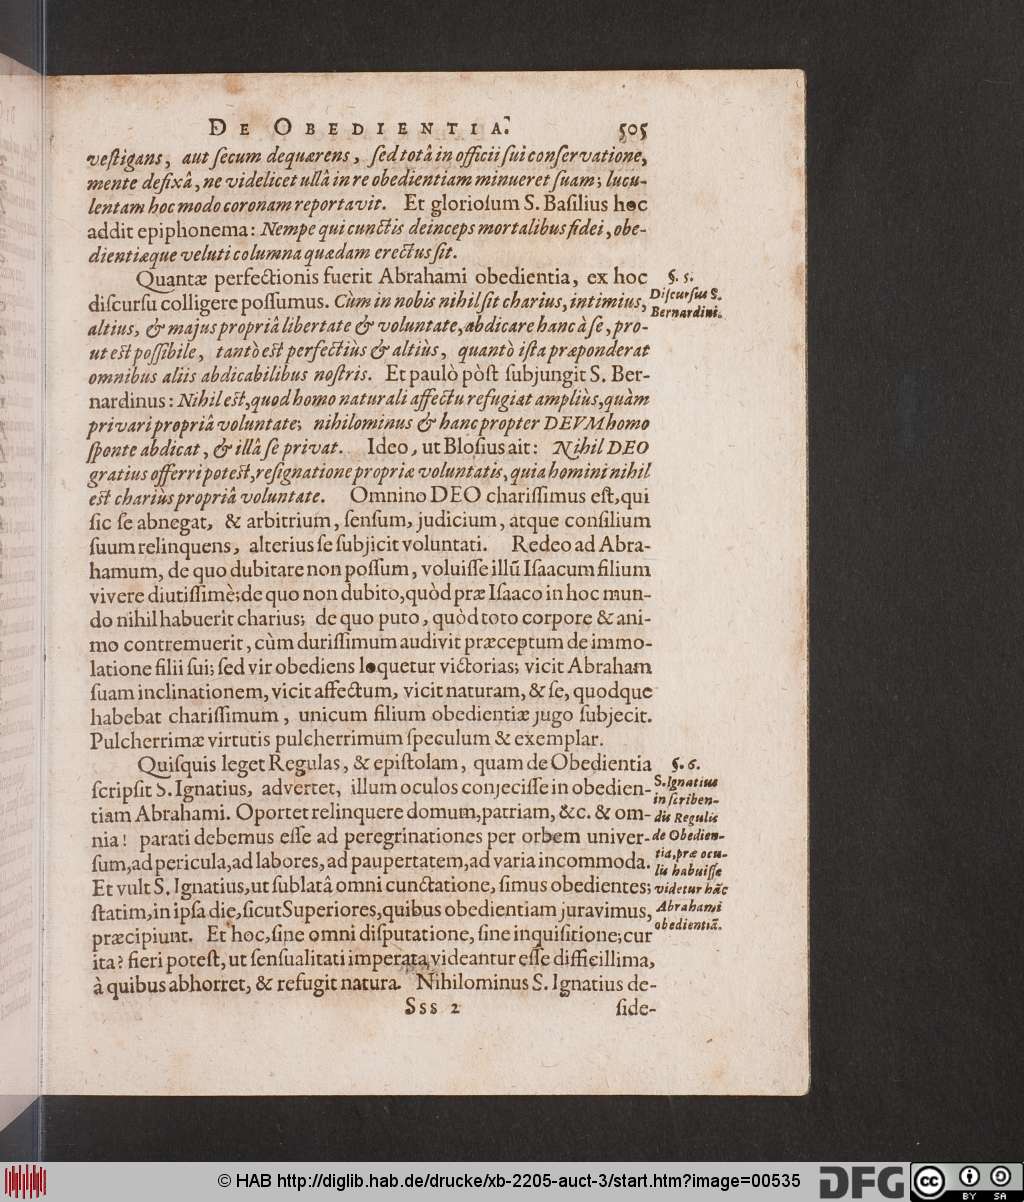 DE OBEDIENTIA. 505
veſtigans, aut ſecum dequærens, ſed totâ in officii ſui conſervatione,
mente defixâ, ne videlicet ullâ in re obedientiam minueret ſuam; lucu-
lentam hoc modo coronam reportavit. Et glorioſum S. Baſilius hoc
addit epiphonema: Nempe qui cunctis deinceps mortalibus fidei, obe-
dientiæque veluti columna quædam erectus ſit.
Quantæ perfectionis fuerit Abrahami obedientia, ex hoc
diſcurſu colligere poſſumus. Cùm in nobis nihil ſit charius, intimius,
altius, & majus propriâ libertate & voluntate, abdicare hanc à ſe, pro-
ut eſt poſſibile, tantò eſt perfectiùs & altiùs, quantò iſta præponderat
omnibus aliis abdicabilibus noſtris. Et paulò pòſt ſubjungit S. Ber-
nardinus: Nihil eſt, quod homo naturali affectu refugiat ampliùs, quàm
privari propriâ voluntate; nihilominus & hanc propter DEVM homo
ſponte abdicat, & illâ ſe privat. Ideo, ut Bloſius ait: Nihil DEO
gratius offerri poteſt, reſignatione propriæ voluntatis, quia homini nihil
eſt chariùs propriâ voluntate. Omnino DEO chariſſimus eſt, qui
ſic ſe abnegat, & arbitrium, ſenſum, judicium, atque conſilium
ſuum relinquens, alterius ſe ſubjicit voluntati. Redeo ad Abra-
hamum, de quo dubitare non poſſum, voluiſſe illũ Iſaacum filium
vivere diutiſſimè; de quo non dubito, quòd præ Iſaaco in hoc mun-
do nihil habuerit charius; de quo puto, quòd toto corpore & ani-
mo contremuerit, cùm duriſſimum audivit præceptum de immo-
latione filii ſui; ſed vir obediens loquetur victorias; vicit Abraham
ſuam inclinationem, vicit affectum, vicit naturam, & ſe, quodque
habebat chariſſimum, unicum filium obedientiæ jugo ſubjecit.
Pulcherrimæ virtutis pulcherrimum ſpeculum & exemplar.
Quiſquis leget Regulas, & epiſtolam, quam de Obedientia
ſcripſit S. Ignatius, advertet, illum oculos conjeciſſe in obedien-
tiam Abrahami. Oportet relinquere domum, patriam, &c. & om-
nia! parati debemus eſſe ad peregrinationes per orbem univer-
ſum, ad pericula, ad labores, ad paupertatem, ad varia incommoda.
Et vult S. Ignatius, ut ſublatâ omni cunctatione, ſimus obedientes;
ſtatim, in ipſa die, ſicut Superiores, quibus obedientiam juravimus,
præcipiunt. Et hoc, ſine omni diſputatione, ſine inquiſitione; cur
ita? fieri poteſt, ut ſenſualitati imperata videantur eſſe difficillima,
à quibus abhorret, & refugit natura. Nihilominus S. Ignatius de-
Sss 2 ſide-
§. 5.
Diſcurſus S.
Bernardini.
§. 6.
S. Ignatius
in ſcriben-
dis Regulis
de Obedien-
tia, præ ocu-
lis habuiſſe
videtur hãc
Abrahami
obedientiã.
© HAB http://diglib.hab.de/drucke/xb-2205-auct-3/start.htm?image=00535
DFG
cc BY SA